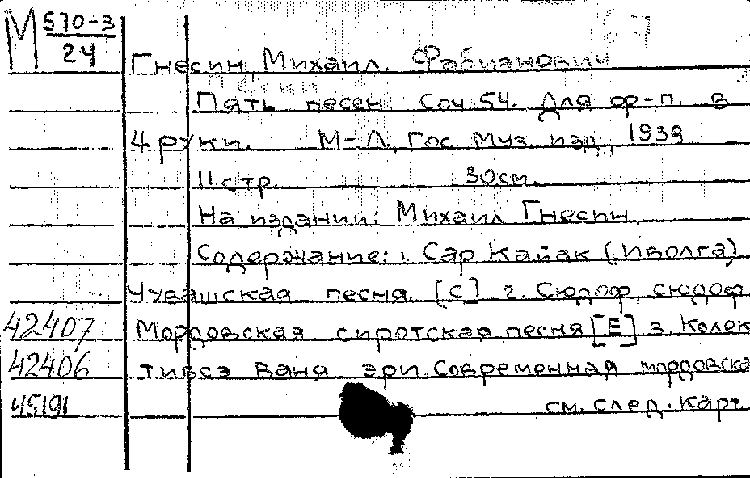 М 570-3
24
Гнесин, Михаил Фабианович
Пять песен Соч 54. Для ф-п. в
4 руки. М-Л, Гос. Муз. изд, 1939
11 стр. 30см.
На издании: Михаил Гнесин
Содержание: 1. Сар Кайак (Иволга)
Чувашская песня [С] 2. Сюдоф, сюдоф
42407 Мордовская сиротская песня [Е] 3. Колек
42406 тивсэ вана эри. Современная мордовска
45191 см. след. карт